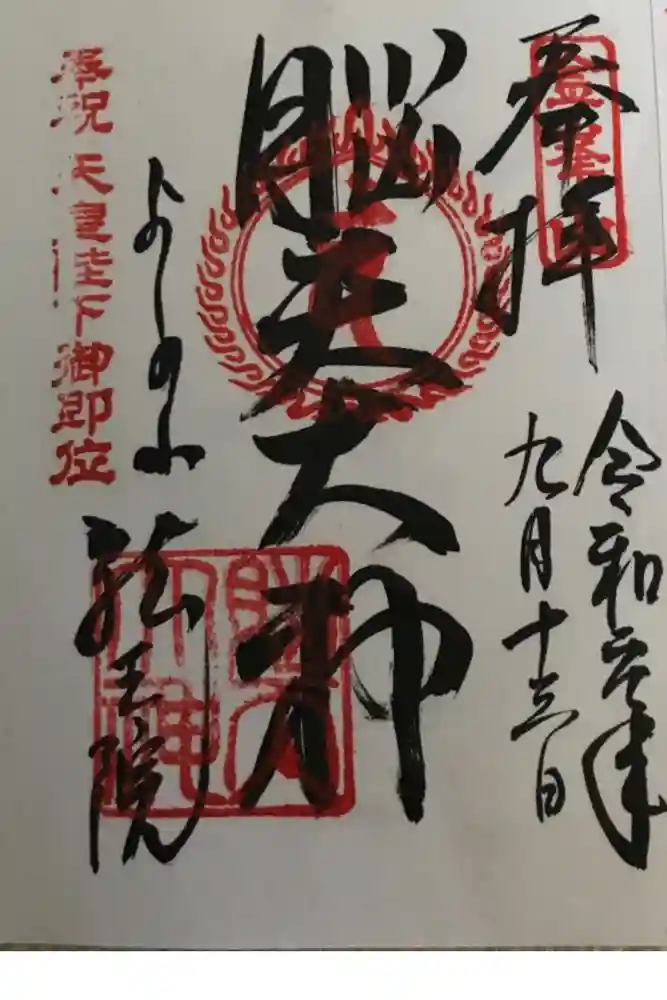 金峯山
奉拝
令和元年
九月十三日
脳天大神
脳天大神
よしの山
龍王院
奉祝 天皇陛下御即位